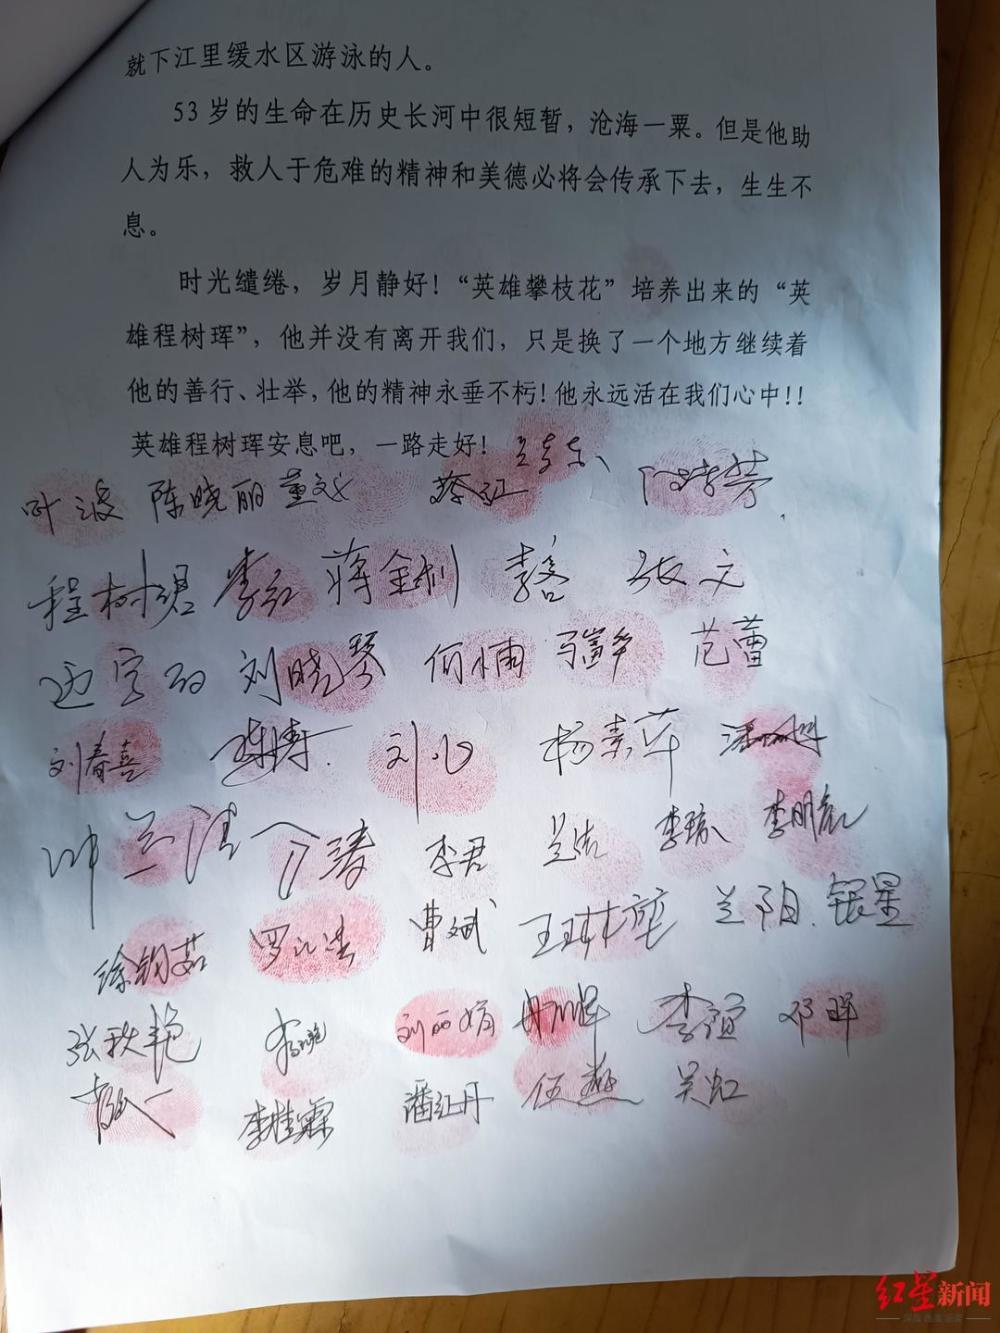 就下江里缓水区游泳的人。
53岁的生命在历史长河中很短暂，沧海一粟。但是他助
人为乐，救人于危难的精神和美德必将会传承下去，生生不
息。
时光缱绻，岁月静好！“英雄攀枝花”培养出来的“英
雄程树珲”，他并没有离开我们，只是换了一个地方继续着
他的善行、壮举，他的精神永垂不朽！他永远活在我们心中！！
英雄程树珲安息吧，一路走好！
叶波 陈晓丽 董文 蔡红
程树珺 李红 蒋金钊 张文
刘晓琴 何小雨 马富华 范蕾
刘春喜 陈涛 杨素萍
李君 兰洁 李瑜 李明
徐钥茹 罗 曹斌 王琳 兰阳 银星
张秋艳 刘丽娟 李谊 邓晖
李桂霖 潘红丹 伍 吴虹
红星新闻